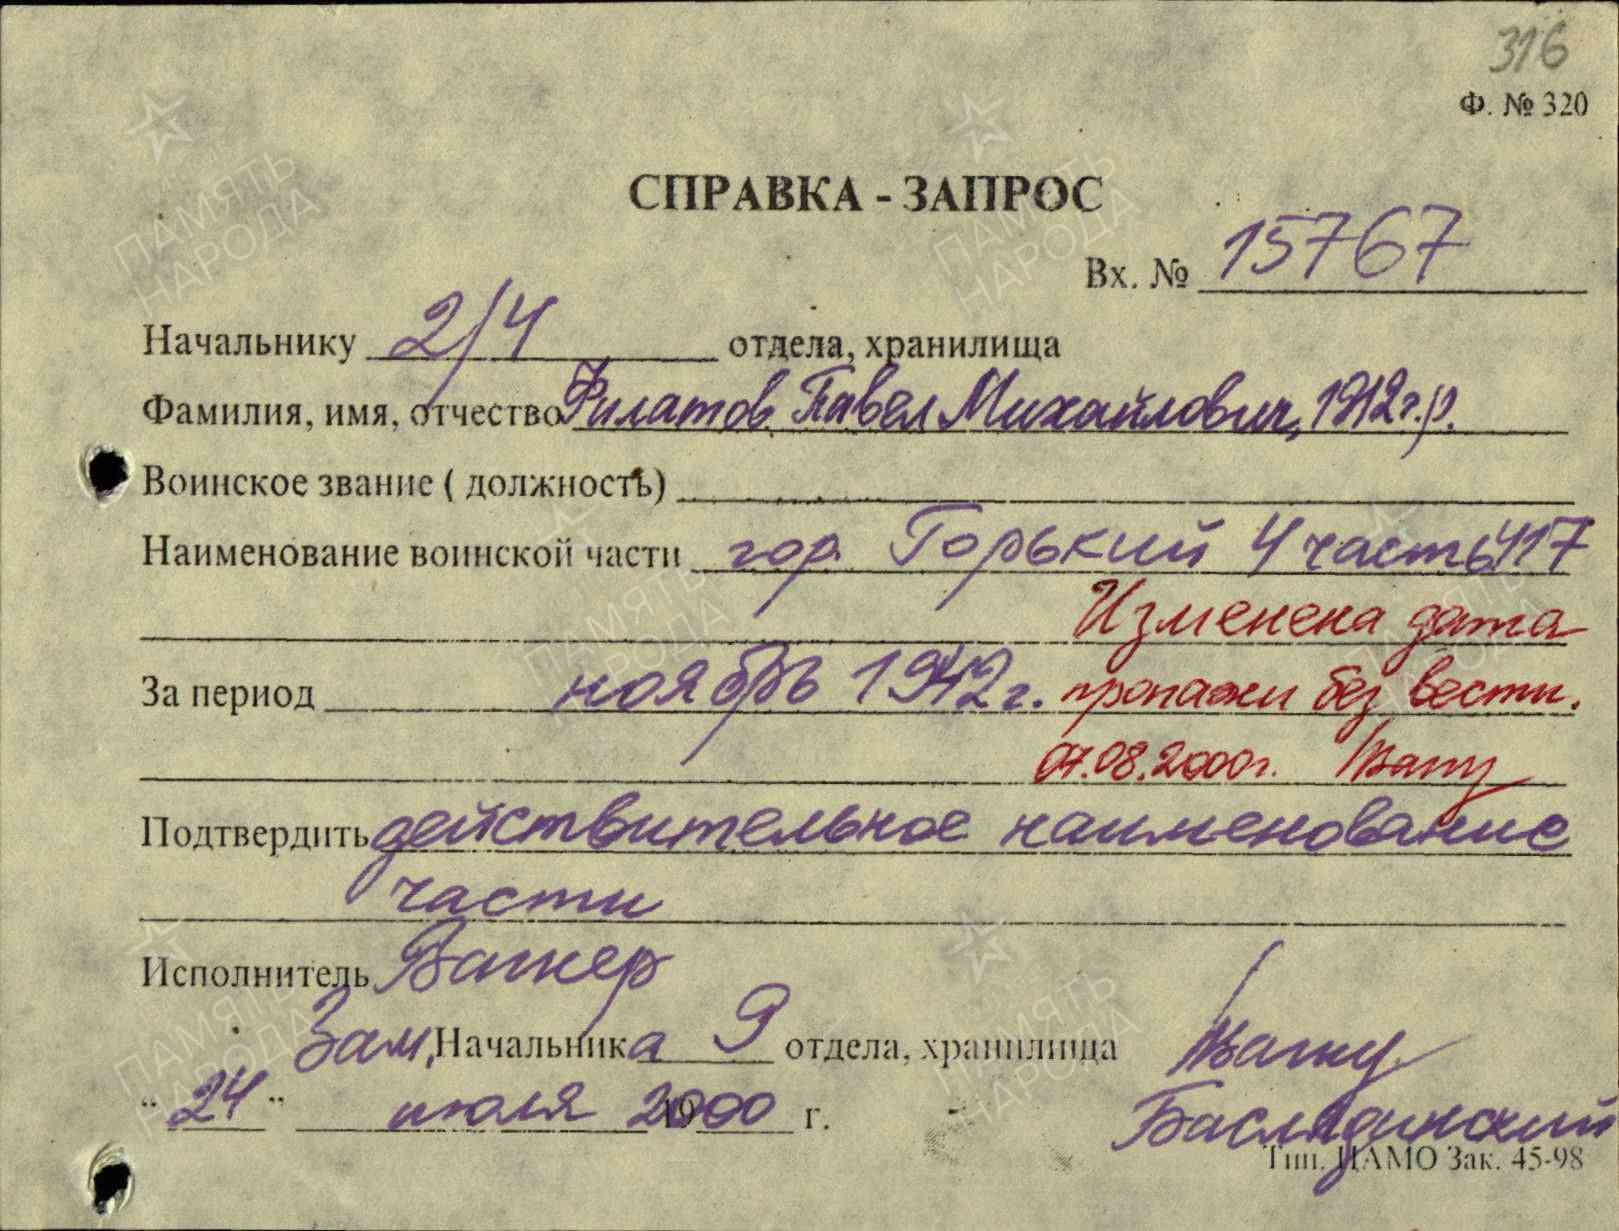 316
Ф. № 320
СПРАВКА - ЗАПРОС
Вх. № 15767
Начальнику 2/4 отдела, хранилища
Фамилия, имя, отчество Филатов Павел Михайлович, 1912 г.р.
Воинское звание ( должность)
Наименование воинской части гор. Горький 4 часть 417
Изменена дата
За период ноябрь 1942 г. пропажи без вести.
07.08.2000г.
Подтвердить действительное наименование
части
Исполнитель Вагнер
Зам. Начальника 9 отдела, хранилища
" 24 " июля 2000 г.
Тип. ЦАМО Зак. 45-98
ПАМЯТЬ
НАРОДА